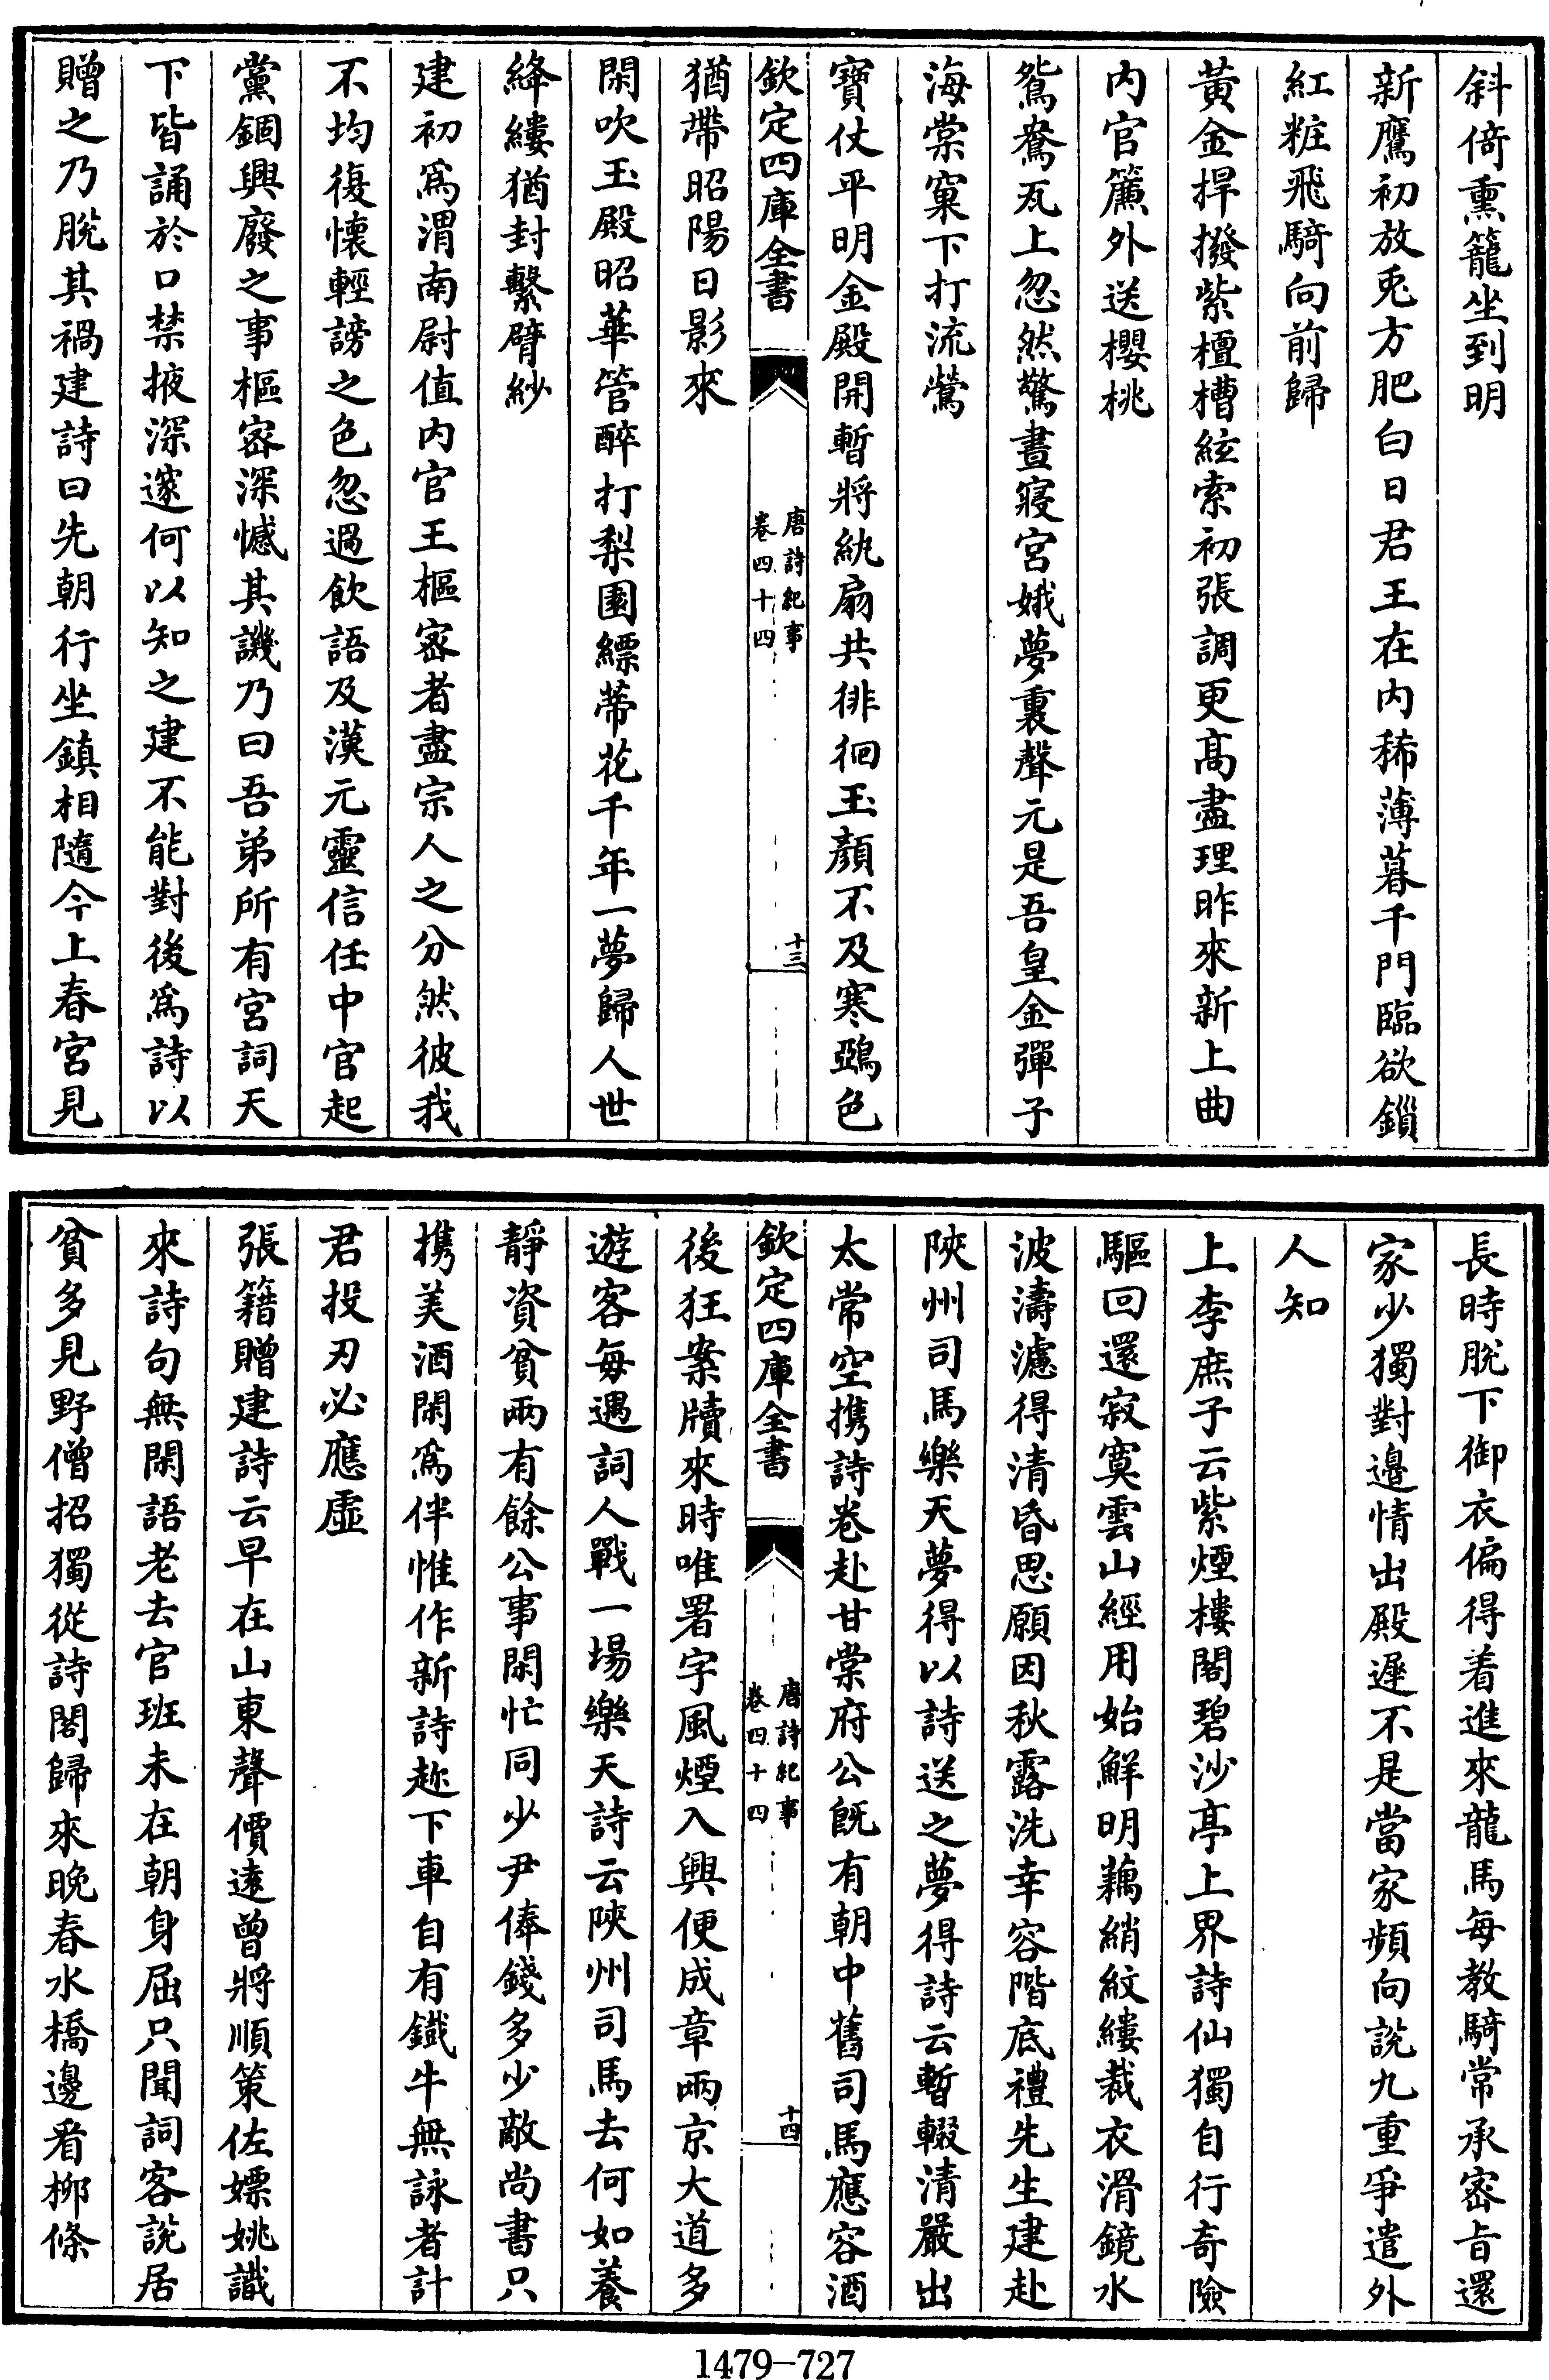 斜倚熏籠坐到明
新鷹初放兎方肥白日君王在内稀薄暮千門臨欲鎻
紅粧飛騎向前歸
黃金捍撥紫檀槽絃索初張調更髙盡理昨來新上曲
内官簾外送櫻桃
鴛鴦瓦上忽然驚晝寢宮娥夢裏聲元是吾皇金彈子
海棠窠下打流鶯
寶仗平明金殿開暫將紈扇共徘徊玉顔不及寒鵶色
欽定四庫全書
唐詩紀事
卷四十四
十三
猶帶昭陽日影來
閑吹玉殿昭華管醉打梨園縹蒂花千年一夢歸人世
絳縷猶封繫臂紗
建初爲渭南尉值内官王樞宻者盡宗人之分然彼我
不均復懷輕謗之色忽過飲語及漢元靈信任中官起
黨錮興廢之事樞宻深憾其譏乃曰吾弟所有宮詞天
下皆誦於口禁掖深邃何以知之建不能對後爲詩以
贈之乃脫其禍建詩曰先朝行坐鎮相隨今上春宮見
長時脫下御衣偏得着進來龍馬每教騎常承宻㫖還
家少獨對邊情出殿遲不是當家頻向說九重爭遣外
人知
上李庶子云紫煙樓閣碧沙亭上界詩仙獨自行奇險
驅回還寂寞雲山經用始鮮明藕綃紋縷裁衣滑鏡水
波濤濾得清昏思願因秋露洗幸容階底禮先生建赴
陜州司馬樂天夢得以詩送之夢得詩云暫輟清嚴出
太常空携詩卷赴甘棠府公既有朝中舊司馬應容酒
欽定四庫全書
唐詩紀事
卷四十四
十四
後狂案牘來時唯署字風煙入興便成章兩京大道多
遊客每遇詞人戰一場樂天詩云陜州司馬去何如養
靜資貧兩有餘公事閑忙同少尹俸錢多少敵尚書只
携美酒閑爲伴惟作新詩趂下車自有鐡牛無詠者計
君投刃必應虛
張籍贈建詩云早在山東聲價逺曾將順策佐嫖姚識
來詩句無閑語老去官班未在朝身屈只聞詞客說居
貧多見野僧招獨從詩閣歸來晚春水橋邊看柳條
1479-727